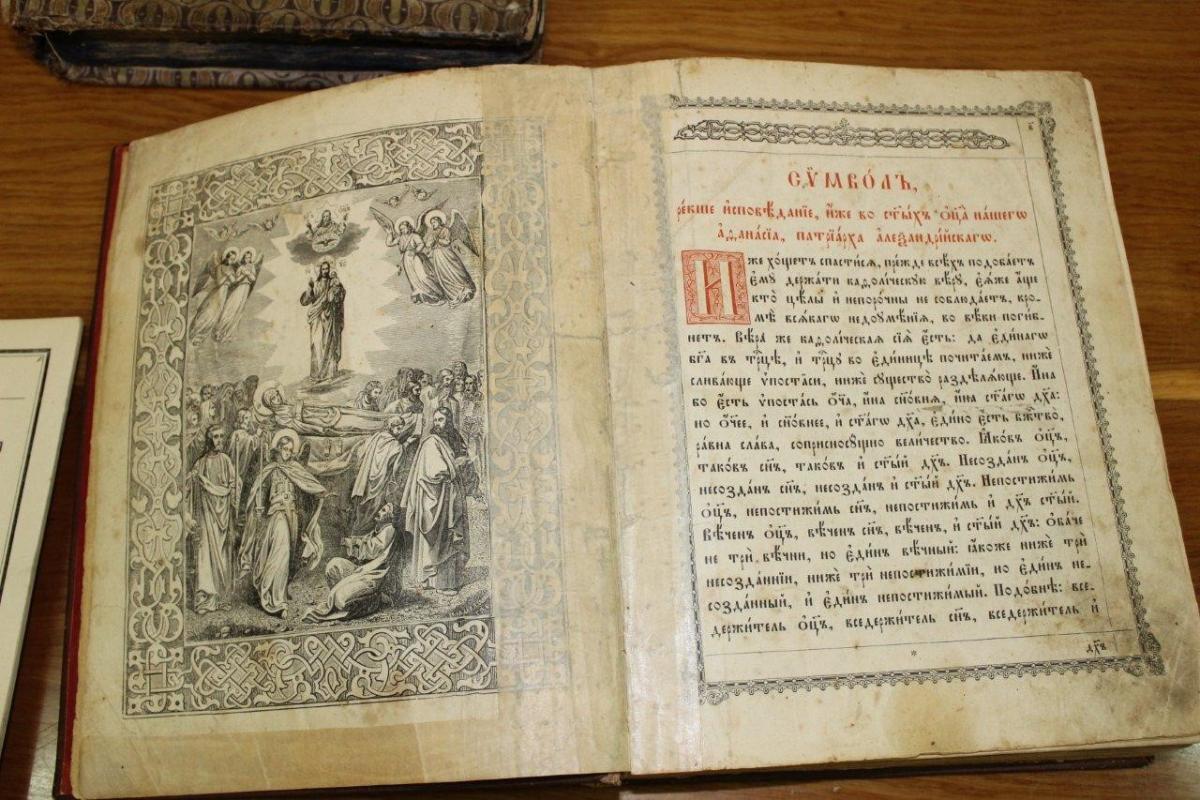 СѴ́МВО́ЛЪ,
ре́кше и҆сповѣ́данїе, и҆́же во ст҃ы́хъ ѻ҆ц҃а̀ на́шегѡ
а҆ѳана́сїа, патрїа́рха а҆леѯандрі́йскагѡ.
И҆́же хо́щетъ спасти́сѧ, пре́жде всѣ́хъ подоба́етъ
є҆мꙋ̀ держа́ти каѳоли́ческꙋю вѣ́рꙋ, є҆ѧ́же а҆́ще
кто̀ цѣ́лы и҆ непоро́чны не соблюда́етъ, кро-
мѣ̀ всѧ́кагѡ недоꙋмѣ́нїѧ, во вѣ́ки поги́б-
нетъ. Вѣ́ра же каѳоли́ческаѧ сїѧ̀ є҆́сть: да є҆ди́нагѡ
бг҃а въ трⷪ҇цѣ, и҆ трⷪ҇цꙋ во є҆ди́ницѣ почита́емъ, нижѐ
слива́юще ѵ҆поста́си, нижѐ сꙋщество̀ раздѣлѧ́юще. И҆́на
бо є҆́сть ѵ҆поста́сь ѻ҆́ч҃а, и҆́на сн҃о́внѧ, и҆́на ст҃а́гѡ дх҃а:
но ѻ҆́ч҃ее, и҆ сн҃о́внее, и҆ ст҃а́гѡ дх҃а, є҆ди́но є҆́сть бж҃тво̀,
ра́вна сла́ва, соприсносꙋ́щно вели́чество. Ꙗ҆ко́въ ѻ҆ц҃ъ,
тако́въ сн҃ъ, тако́въ и҆ ст҃ы́й дх҃ъ. Несозда́нъ ѻ҆ц҃ъ,
несозда́нъ сн҃ъ, несозда́нъ и҆ ст҃ы́й дх҃ъ. Непостижи́мь
ѻ҆ц҃ъ, непостижи́мь сн҃ъ, непостижи́мь и҆ дх҃ъ ст҃ы́й.
Вѣ́ченъ ѻ҆ц҃ъ, вѣ́ченъ сн҃ъ, вѣ́ченъ, и҆ ст҃ы́й дх҃ъ: ѻ҆ба́че
не трѝ вѣ́чни, но є҆ди́нъ вѣ́чный: ꙗ҆́коже нижѐ трѝ
несозда́ннїи, нижѐ трѝ непостижи́мїи, но є҆ди́нъ не-
созда́нный, и҆ є҆ди́нъ непостижи́мый. Подо́бнѣ: все-
держи́тель ѻ҆ц҃ъ, вседержи́тель сн҃ъ, вседержи́тель и҆
*
дх҃ъ